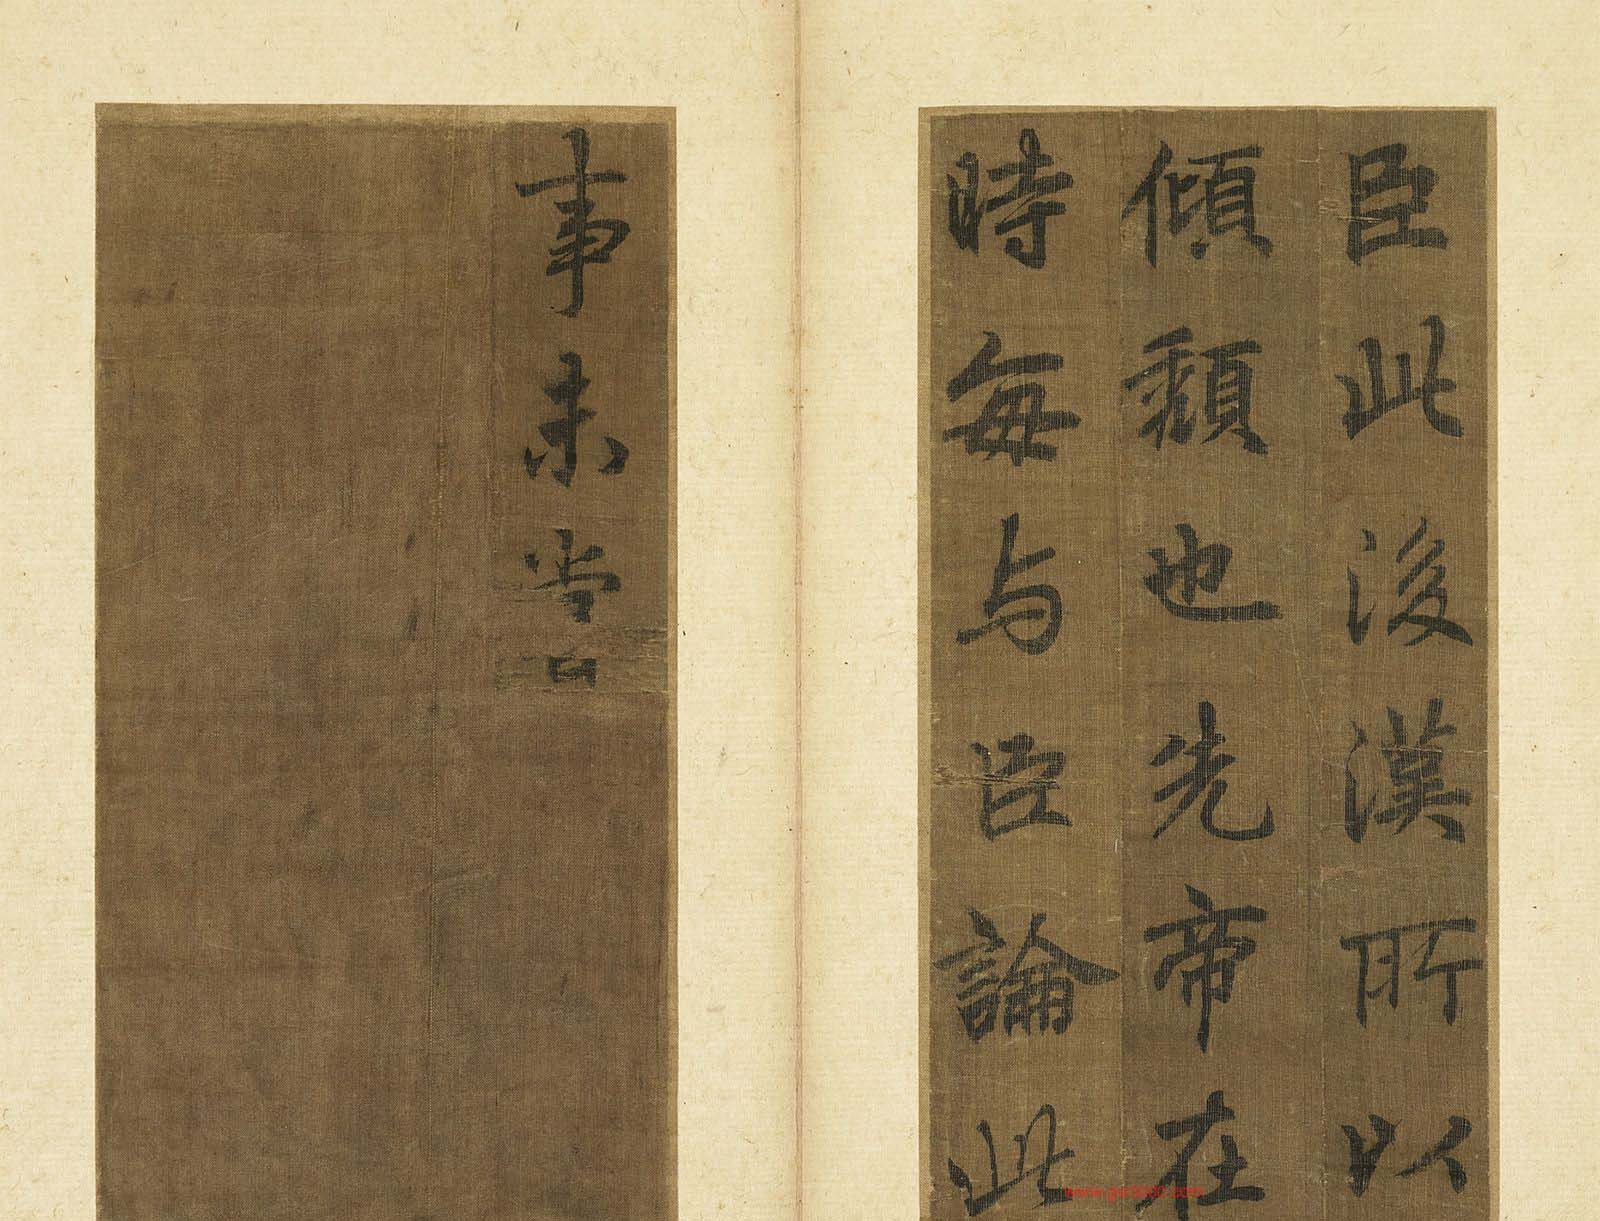 臣此後漢所以
傾頽也先帝在
時每与臣論此
事未嘗
www.gac5000.com